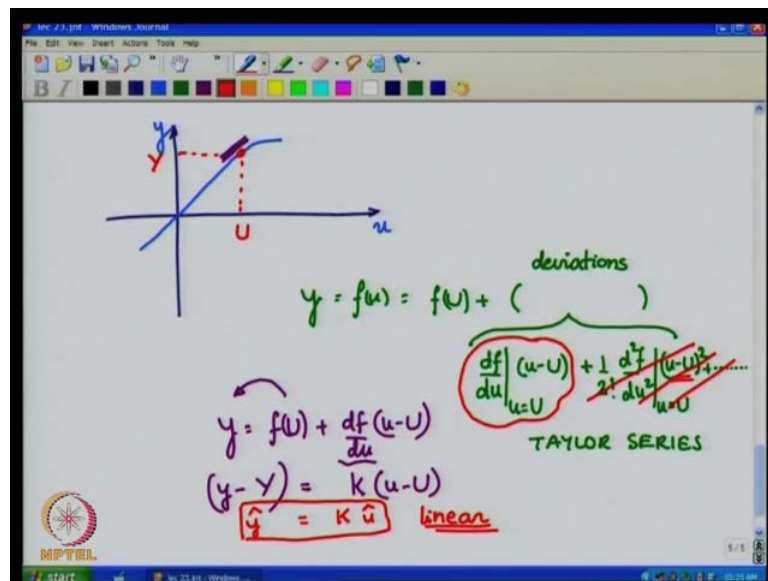 lec 23.jnt - Windows Journal
File Edit View Insert Actions Tools Help
B I
y
Y
U
u
deviations
y = f(u) = f(U) + ( )
df/du|u=U (u-U) + 1/2! d²f/du²|u=U (u-U)² + .......
TAYLOR SERIES
y = f(U) + df/du (u-U)
(y-Y) = K (u-U)
ŷ = K û linear
NPTEL
5/5
start
lec 23.jnt - Windows ...
10:25 AM